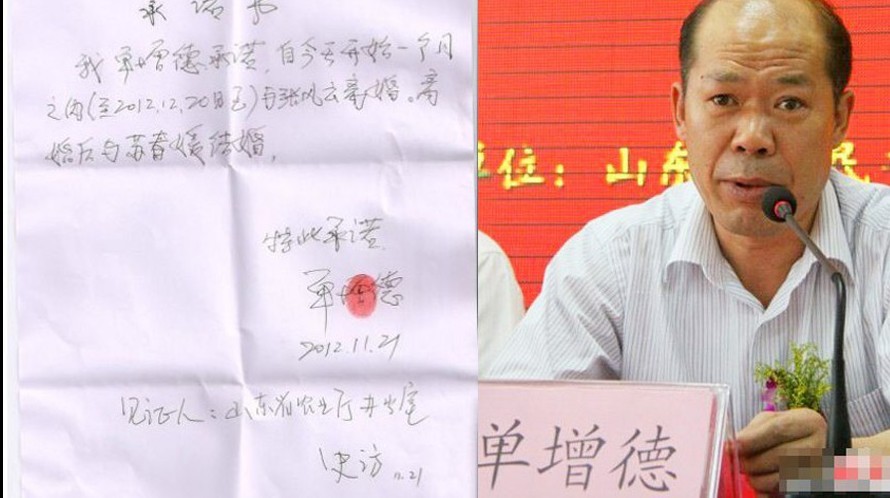 承诺书
我单增德承诺，自今天开始一个月
之内(至2012.12.20日至)与张风云离婚。离
婚后与苏春媛结婚，
特此承诺
单增德
2012.11.21
见证人：山东省农业厅办公室
史访 11.21
位：山东 民
单增德